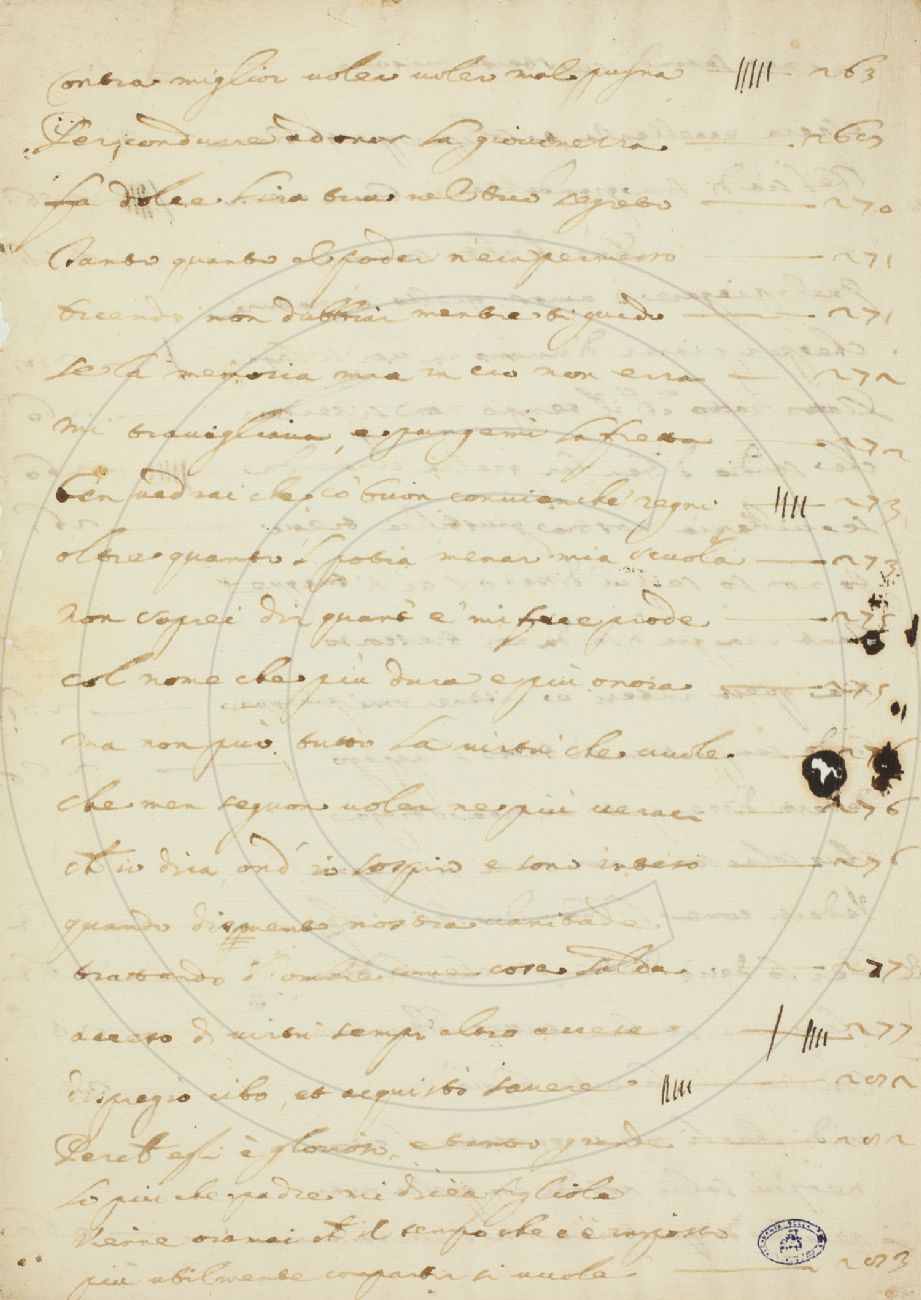 Contra miglior voler voler mal pugna 263
Per condurre ad onor la giovinezza 269
fa dolce l'ira tua nel tuo segreto 270
Tanto quanto al poder n'era permesso 271
dicendo non dubbiar mentre ti guido 271
se la memoria mia in ciò non erra 272
Mi travagliava, e pungemi la fretta 272
ben vedrai che co' buon convien ch'e' regni 273
oltre quanto 'l potrà menar mia scuola 273
non saprei dir quant' e' mi fece prode 275
col nome che più dura e più onora 275
ma non può tutto la virtù che vuole 276
che men seguon voler ne più veraci 276
Ch'io dica, ond' io sospiro e sono inteso 276
quando dismento nostra vanitade
trattando l'ombre come cosa salda 277
acceso di virtù sempr' altro accese 277
dispregiò cibo, et acquistò savere 282
Perch' egli è glorioso, e tanto grande 282
Lo più che padre mi dicea figliole
Vienne oramai ch' il tempo che c'è imposto
più utilmente compartir si vuole 283